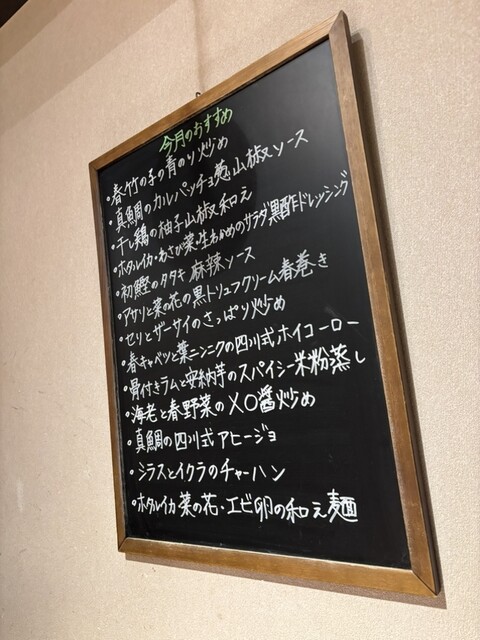 今月のおすすめ
・春竹の子の青のり炒め
・真鯛のカルパッチョ葱山椒ソース
・干し鶏の柚子山椒和え
・ホタルイカ・わさび菜・生わかめのサラダ黒酢ドレッシング
・初鰹のタタキ 麻辣ソース
・アサリと菜の花の黒トリュフクリーム春巻き
・セリとザーサイのさっぱり炒め
・春キャベツと葉ニンニクの四川式ホイコーロー
・骨付きラムと安納芋のスパイシー米粉蒸し
・海老と春野菜のXO醤炒め
・真鯛の四川式アヒージョ
・シラスとイクラのチャーハン
・ホタルイカ菜の花・エビ卵の和え麺